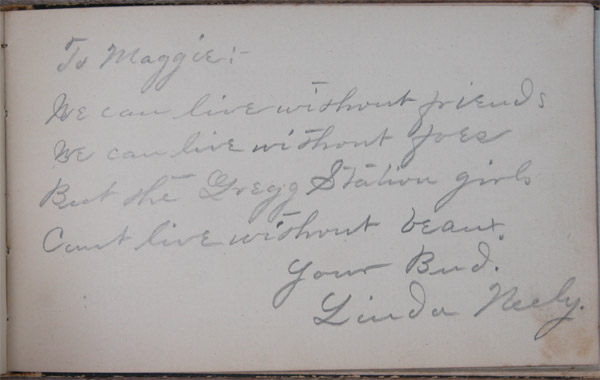 To Maggie:-
We can live without friends
We can live without foes
But the Gregg Station girls
Cant live without beaux.
Your Bud.
Linda Neely.